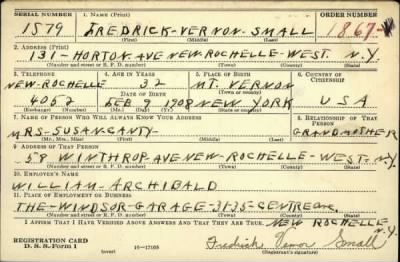 SERIAL NUMBER 1. NAME (Print) ORDER NUMBER
1579 FREDRICK-VERNON-SMALL 1867-
(First) (Middle) (Last)
2. ADDRESS (Print)
131-HORTON AVE NEW-ROCHELLE-WEST. N.Y.
(Number and street or R. F. D. number) (Town) (County) (State)
3. TELEPHONE 4. AGE IN YEARS 5. PLACE OF BIRTH 6. COUNTRY OF CITIZENSHIP
NEW-ROCHELLE 32 MT. VERNON
DATE OF BIRTH (Town or county)
4052 FEB 9 1908 NEW YORK USA
(Exchange) (Number) (Mo.) (Day) (Yr.) (State or country)
7. NAME OF PERSON WHO WILL ALWAYS KNOW YOUR ADDRESS 8. RELATIONSHIP OF THAT PERSON
MRS-SUSAN CANTY GRANDMOTHER
(Mr., Mrs., Miss) (First) (Middle) (Last)
9. ADDRESS OF THAT PERSON
58 WINTHROP AVE NEW-ROCHELLE-WEST. N.Y.
(Number and street or R. F. D. number) (Town) (County) (State)
10. EMPLOYER'S NAME
WILLIAM-ARCHIBALD
11. PLACE OF EMPLOYMENT OR BUSINESS
THE-WINDSOR-GARAGE-31-35-CENTRE AVE, NEW ROCHELLE N.Y.
(Number and street or R. F. D. number) (Town) (County) (State)
I AFFIRM THAT I HAVE VERIFIED ABOVE ANSWERS AND THAT THEY ARE TRUE.
REGISTRATION CARD
D. S. S. Form 1 (over) 16-17105 Fredrick Vernon Small
(Registrant's signature)